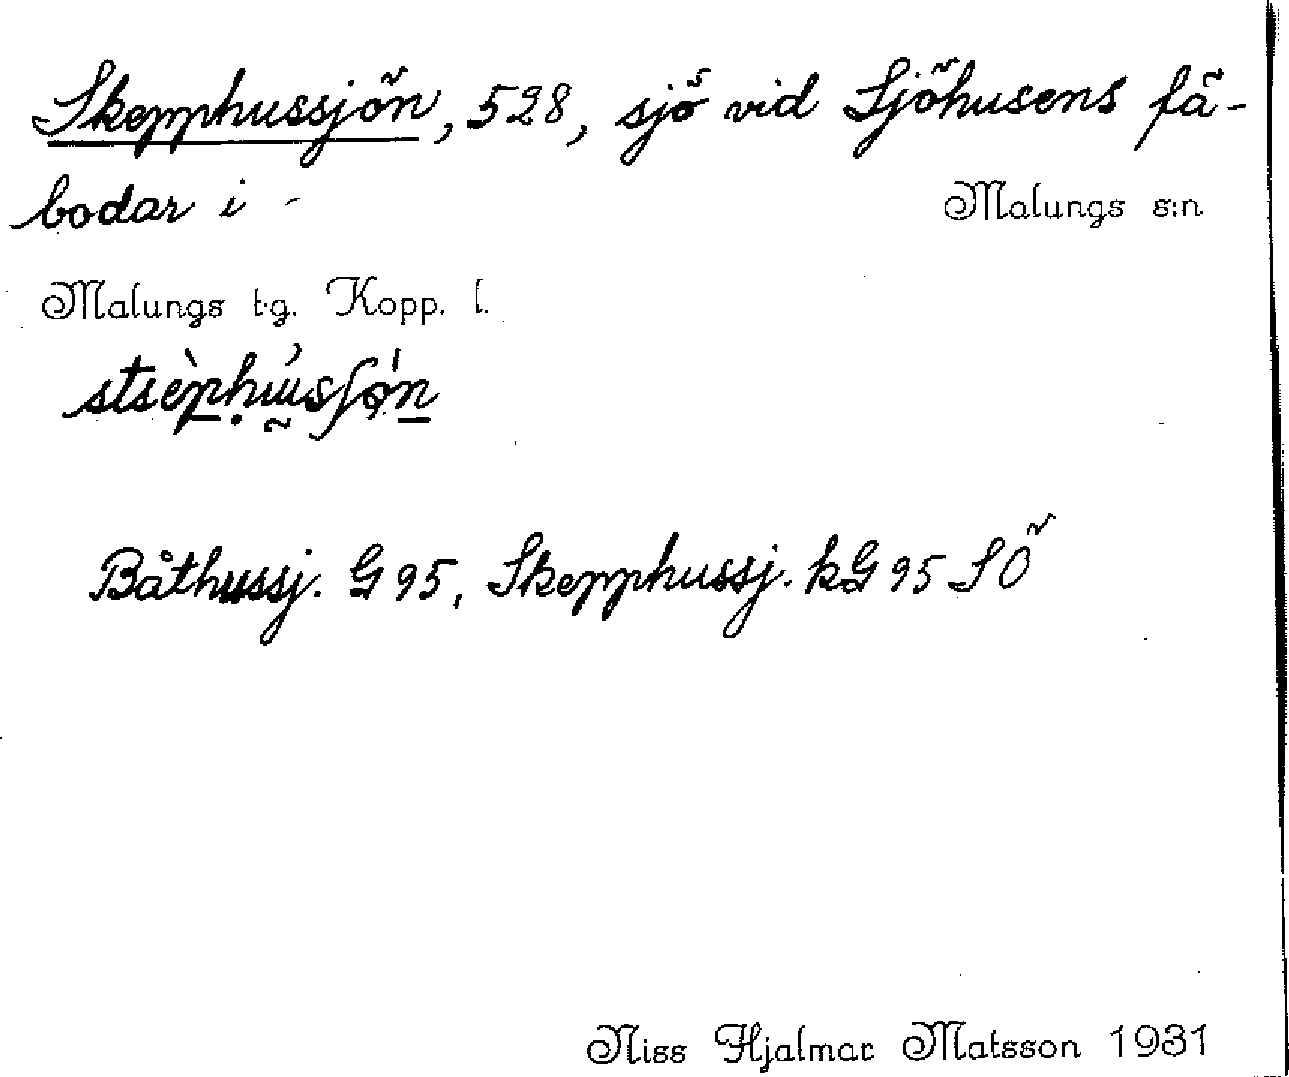 Skepphussjön, 528, sjö vid Sjöhusens fä-
bodar i -
Malungs s:n
Malungs t.g. Kopp. l.
Båthussj. G 95, Skepphussj. kG 95 SO
Niss Hjalmar Matsson 1931